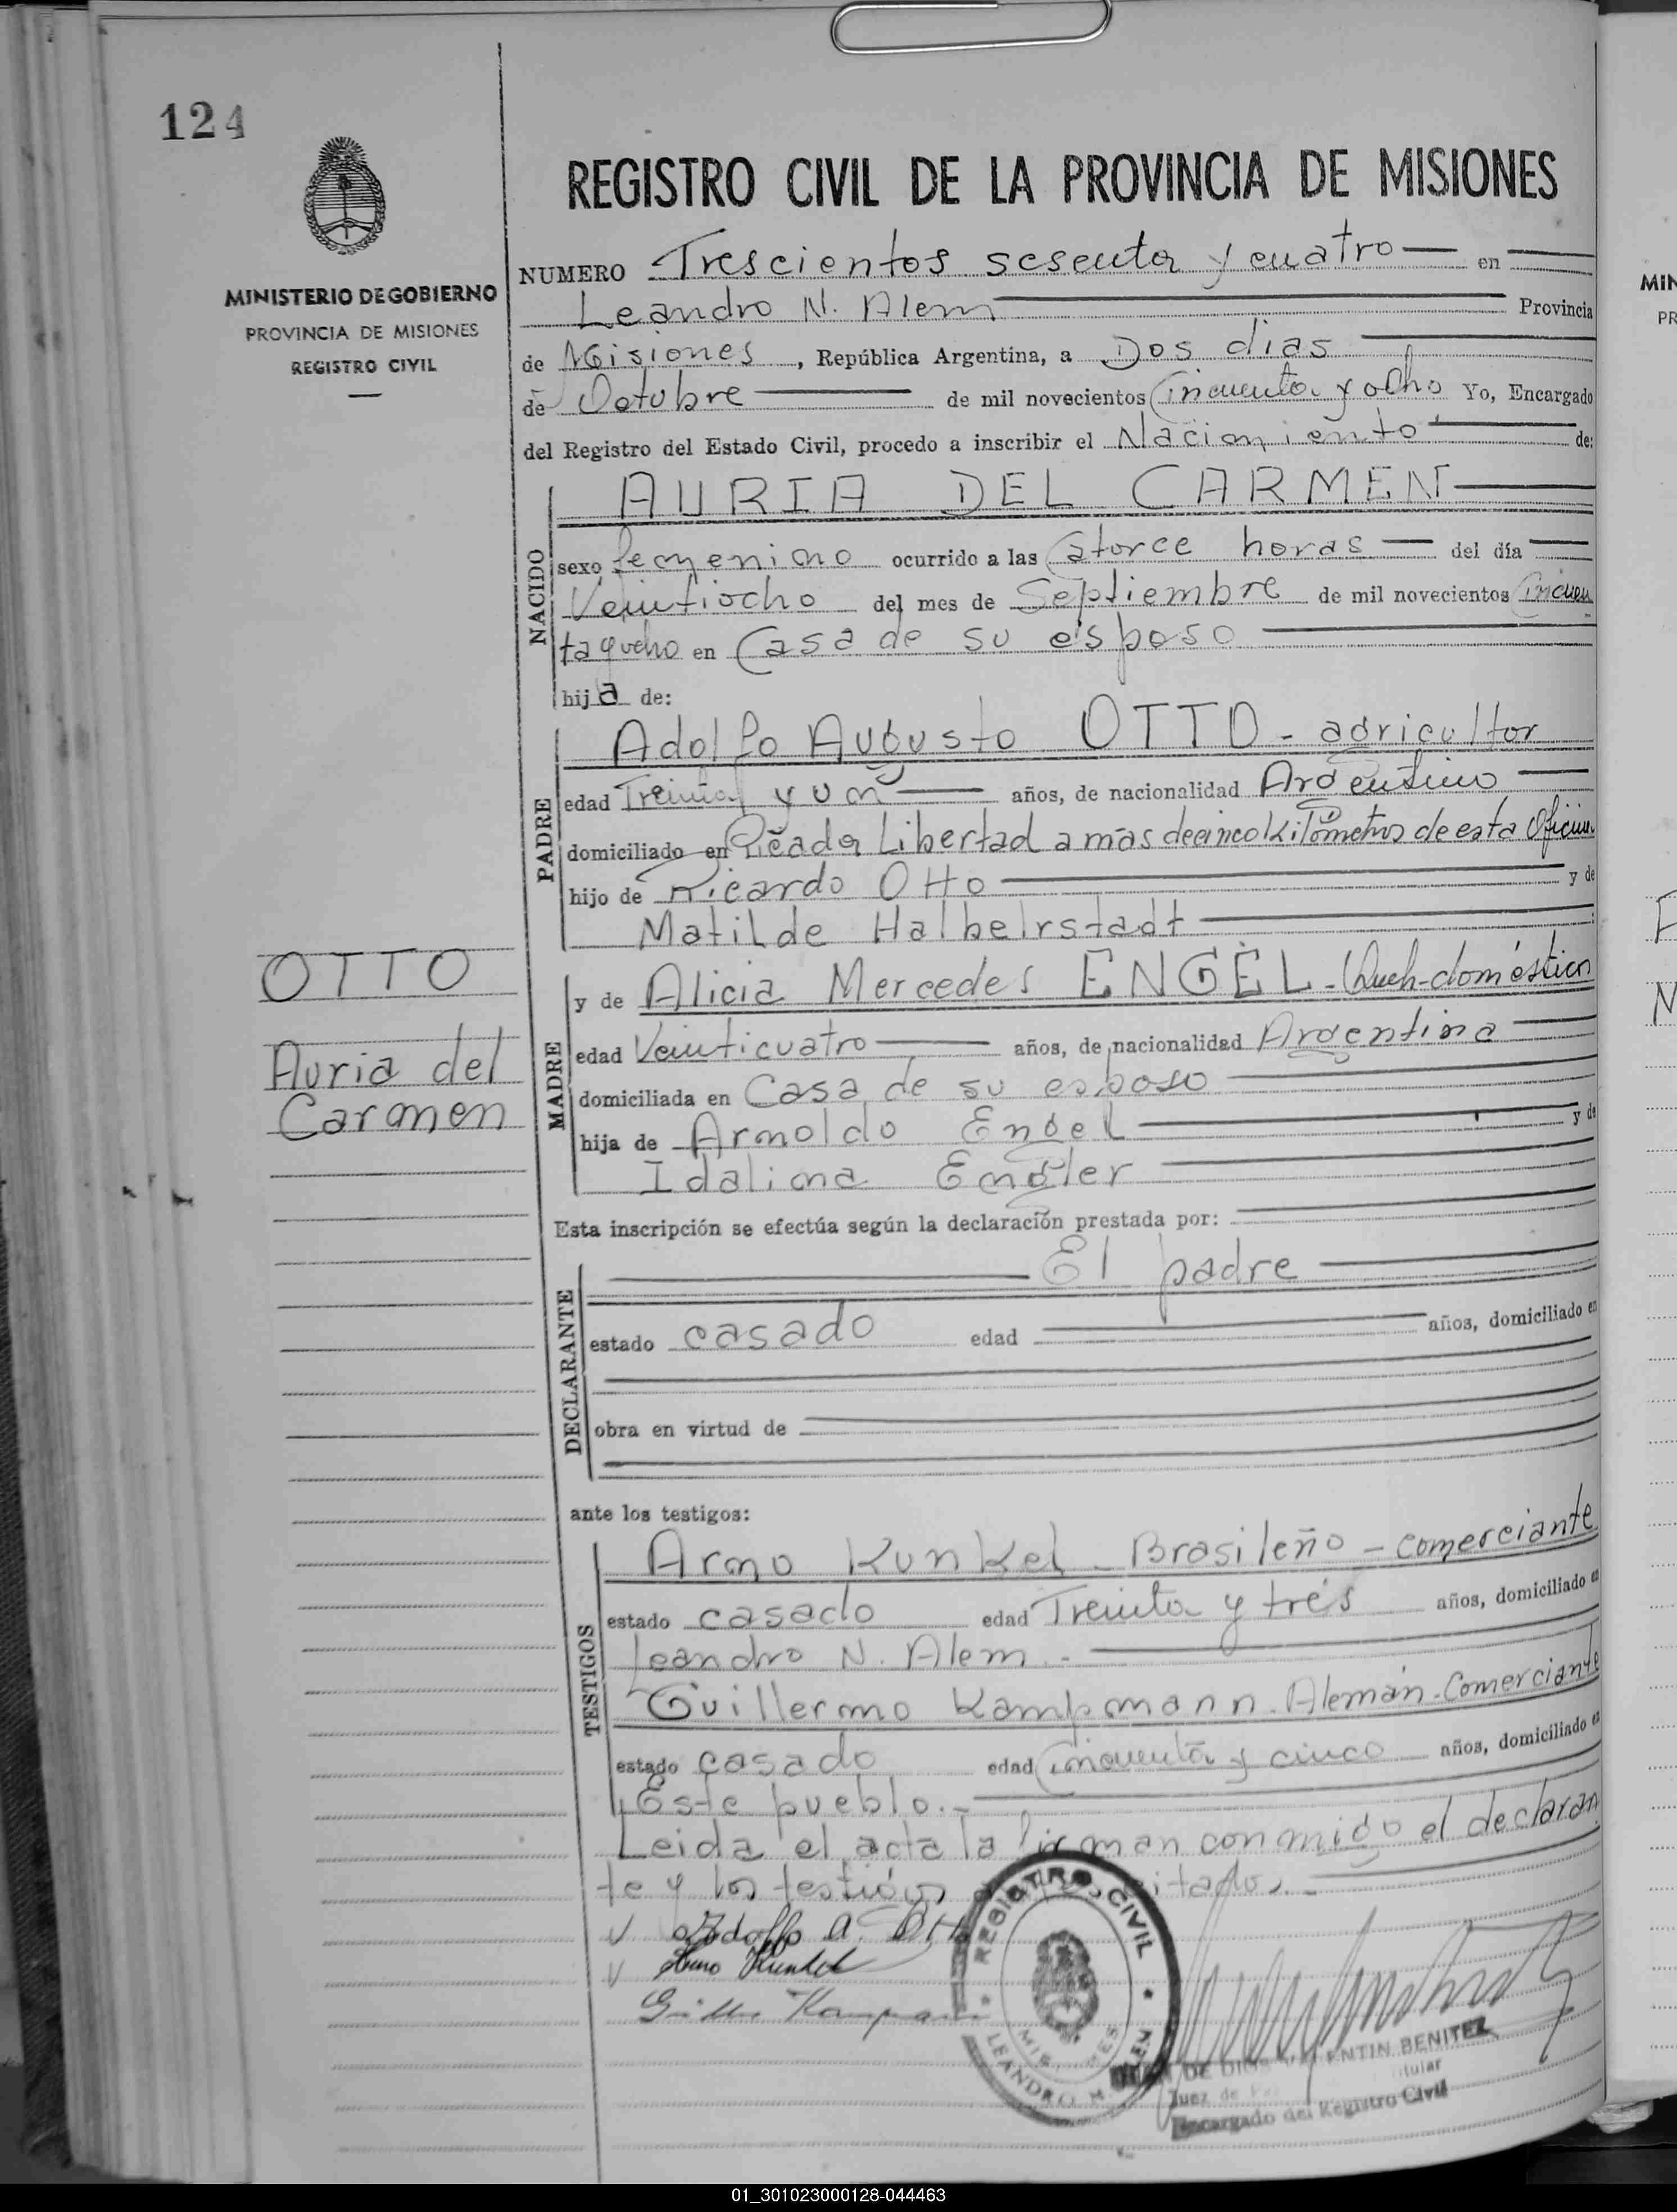 124
MINISTERIO DE GOBIERNO
PROVINCIA DE MISIONES
REGISTRO CIVIL
REGISTRO CIVIL DE LA PROVINCIA DE MISIONES
NUMERO Trescientos sesenta y cuatro en
Leandro N. Alem Provincia
de Misiones, República Argentina, a Dos dias
de Octubre de mil novecientos Cincuenta y ocho Yo, Encargado
del Registro del Estado Civil, procedo a inscribir el Nacimiento de:
NACIDO
AURIA DEL CARMEN
sexo femenino ocurrido a las Catorce horas del día
Veintiocho del mes de Septiembre de mil novecientos Cincuen
ta y ocho en Casa de su esposo
hija de:
PADRE
Adolfo Augusto OTTO - agricultor
edad Treinta y un años, de nacionalidad Argentino
domiciliado en Picada Libertad a más de cinco kilómetros de esta Oficina
hijo de Ricardo Otto y de
Matilde Halbelrstadt
OTTO
Auria del
Carmen
MADRE
y de Alicia Mercedes ENGEL - Queh-doméstico
edad Veinticuatro años, de nacionalidad Argentina
domiciliada en Casa de su esposo
hija de Arnoldo Engel y de
Idalina Engler
Esta inscripción se efectúa según la declaración prestada por:
DECLARANTE
El padre
estado casado edad años, domiciliado en
obra en virtud de
ante los testigos:
TESTIGOS
Arno Kunkel - Brasileño - comerciante
estado casado edad Treinta y trés años, domiciliado en
Leandro N. Alem.-
Guillermo Kampmann - Alemán - Comerciante
estado casado edad Cincuenta y cinco años, domiciliado en
Este pueblo.-
Leida el acta la firman conmigo el declaran
te y los testigos
Adolfo A. Otto
Arno Kunkel
REGISTRO CIVIL
MISIONES
LEANDRO N. ALEM
DE DIOS VALENTIN BENITEZ
Juez de Titular
Encargado del Registro Civil
MIN
PR
01_301023000128-044463